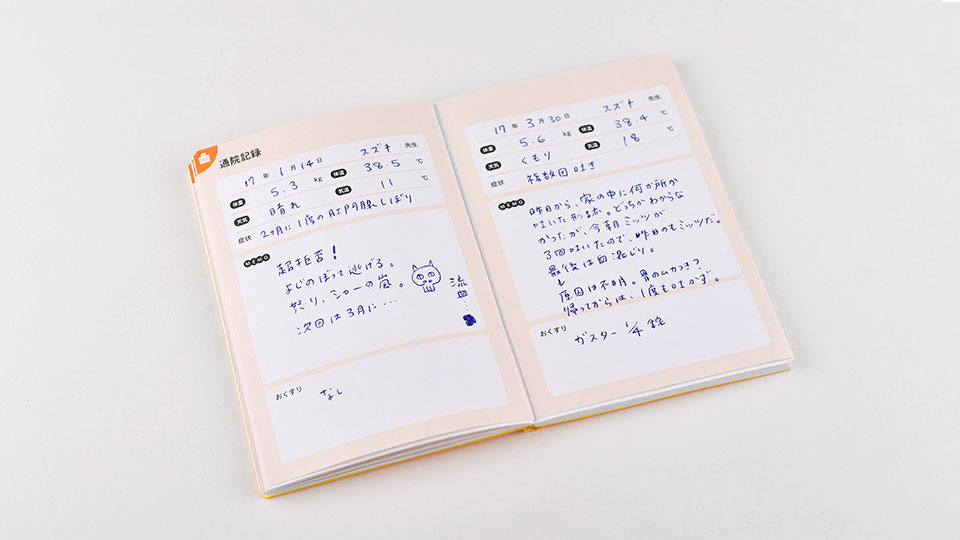 通院記録
17 年 1 月 14 日 スズキ 先生
体重 5.3 kg 体温 38.5 ℃
天気 晴れ 気温 11 ℃
症状 2ヶ月に1度の肛門腺しぼり
MEMO
超拒否!
よじのぼって逃げる。
怒り、シャーの嵐。
次回は3月に…
流血…
おくすり
なし
17 年 3 月 30 日 スズキ 先生
体重 5.6 kg 体温 38.4 ℃
天気 くもり 気温 18 ℃
症状 複数回吐き
MEMO
昨日から、家の中に何か所か
吐いた形跡。どちかわからな
かったが、今朝ミッツが
3回吐いたので、昨日のもミッツだ。
最後は白泡じり。
原因は不明。胃のムカつき?
帰ってからは、1度も吐かず。
おくすり
ガスター 1/4 錠